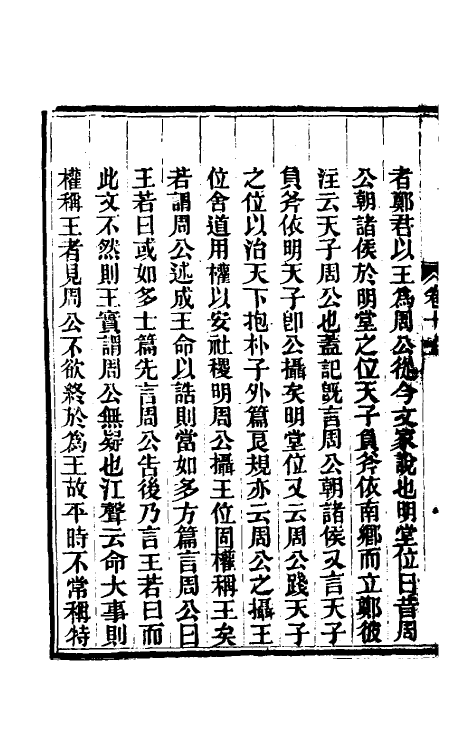 者鄭君以王爲周公從今文家說也明堂位曰昔周
公朝諸侯於明堂之位天子負斧依南鄉而立鄭彼
注云天子周公也蓋記旣言周公朝諸侯又言天子
負斧依明天子卽公攝矣明堂位又云周公踐天子
之位以治天下抱朴子外篇良規亦云周公之攝王
位舍道用權以安社稷明周公攝王位固權稱王矣
若謂周公述成王命以誥則當如多方篇言周公曰
王若曰或如多士篇先言周公告後乃言王若曰而
此文不然則王實謂周公無疑也江聲云命大事則
權稱王者見周公不欲終於爲王故平時不常稱特